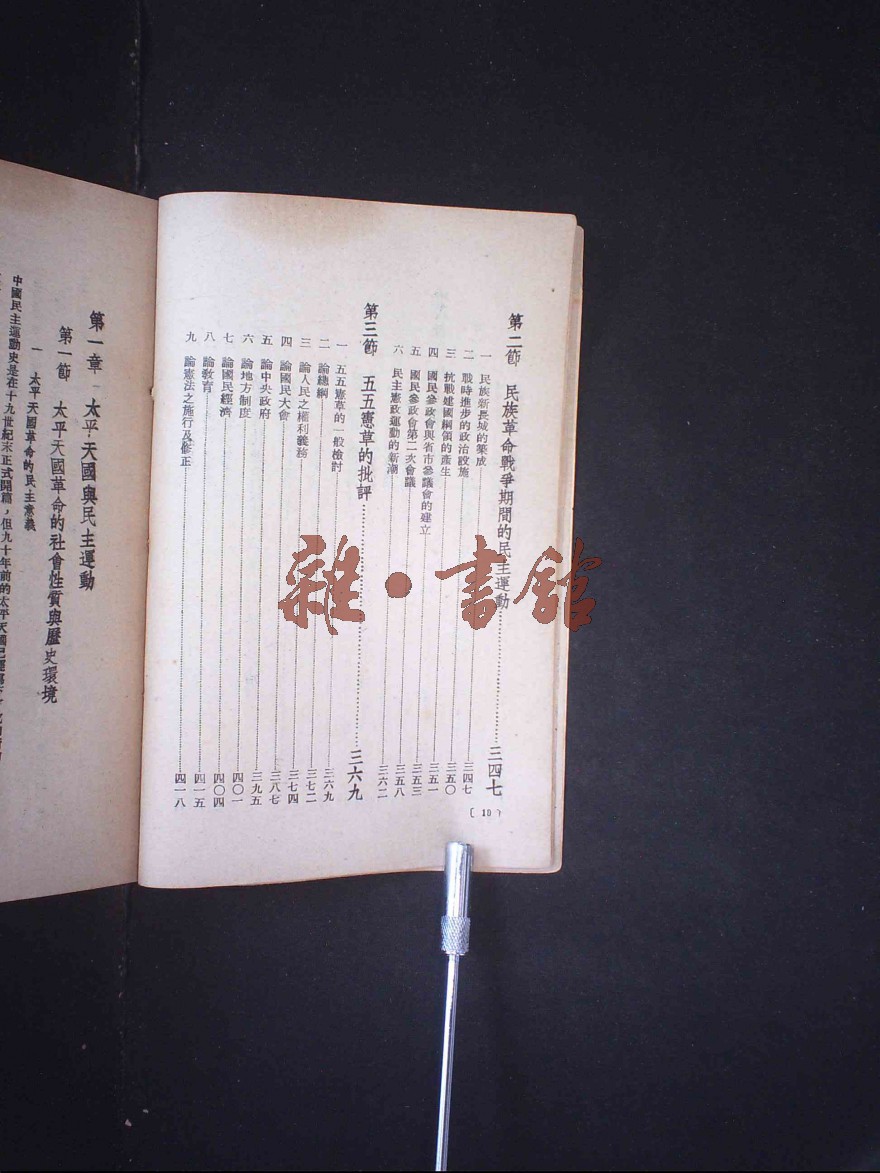 第二節　民族革命戰爭期間的民主運動……三四七
一　民族新長城的築成……三四七
二　戰時進步的政治設施……三五〇
三　抗戰建國綱領的產生……三五一
四　國民參政會與省市參議會的建立……三五三
五　國民參政會第二次會議……三五八
六　民主憲政運動的新潮……三六二
第三節　五五憲草的批評……三六九
一　五五憲草的一般檢討……三六九
二　論總綱……三七二
三　論人民之權利義務……三七四
四　論國民大會……三八七
五　論中央政府……三九五
六　論地方制度……四〇一
七　論國民經濟……四〇四
八　論教育……四一五
九　論憲法之施行及修正……四一八
〔10〕
第一章　太平天國與民主運動
第一節　太平天國革命的社會性質與歷史環境
一　太平天國革命的民主意義
中國民主運動史是在十九世紀末正式開篇，但九十年前的太平天國已
雜·書館